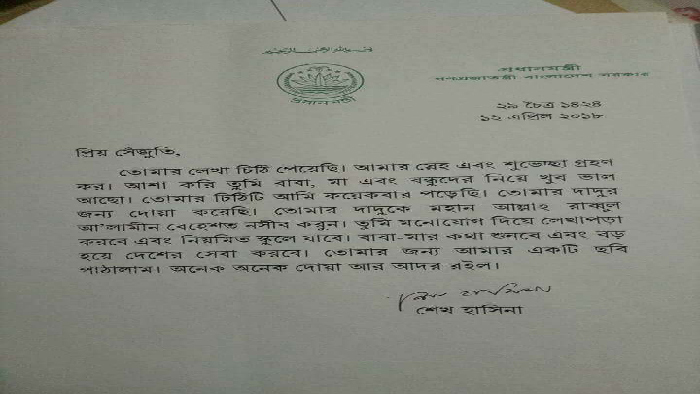 প্রধানমন্ত্রী
প্রধানমন্ত্রী
গণপ্রজাতন্ত্রী বাংলাদেশ সরকার
২৯ চৈত্র ১৪২৪
১২ এপ্রিল ২০১৮
প্রিয় সেঁজুতি,
তোমার লেখা চিঠি পেয়েছি। আমার স্নেহ এবং শুভেচ্ছা গ্রহণ
কর। আশা করি তুমি বাবা, মা এবং বন্ধুদের নিয়ে খুব ভাল
আছো। তোমার চিঠিটি আমি কয়েকবার পড়েছি। তোমার দাদুর
জন্য দোয়া করেছি। তোমার দাদুকে মহান আল্লাহ রাব্বুল
আ'লামীন বেহেশত নসীব করুন। তুমি মনোযোগ দিয়ে লেখাপড়া
করবে এবং নিয়মিত স্কুলে যাবে। বাবা-মার কথা শুনবে এবং বড়
হয়ে দেশের সেবা করবে। তোমার জন্য আমার একটি ছবি
পাঠালাম। অনেক অনেক দোয়া আর আদর রইল।
শেখ হাসিনা